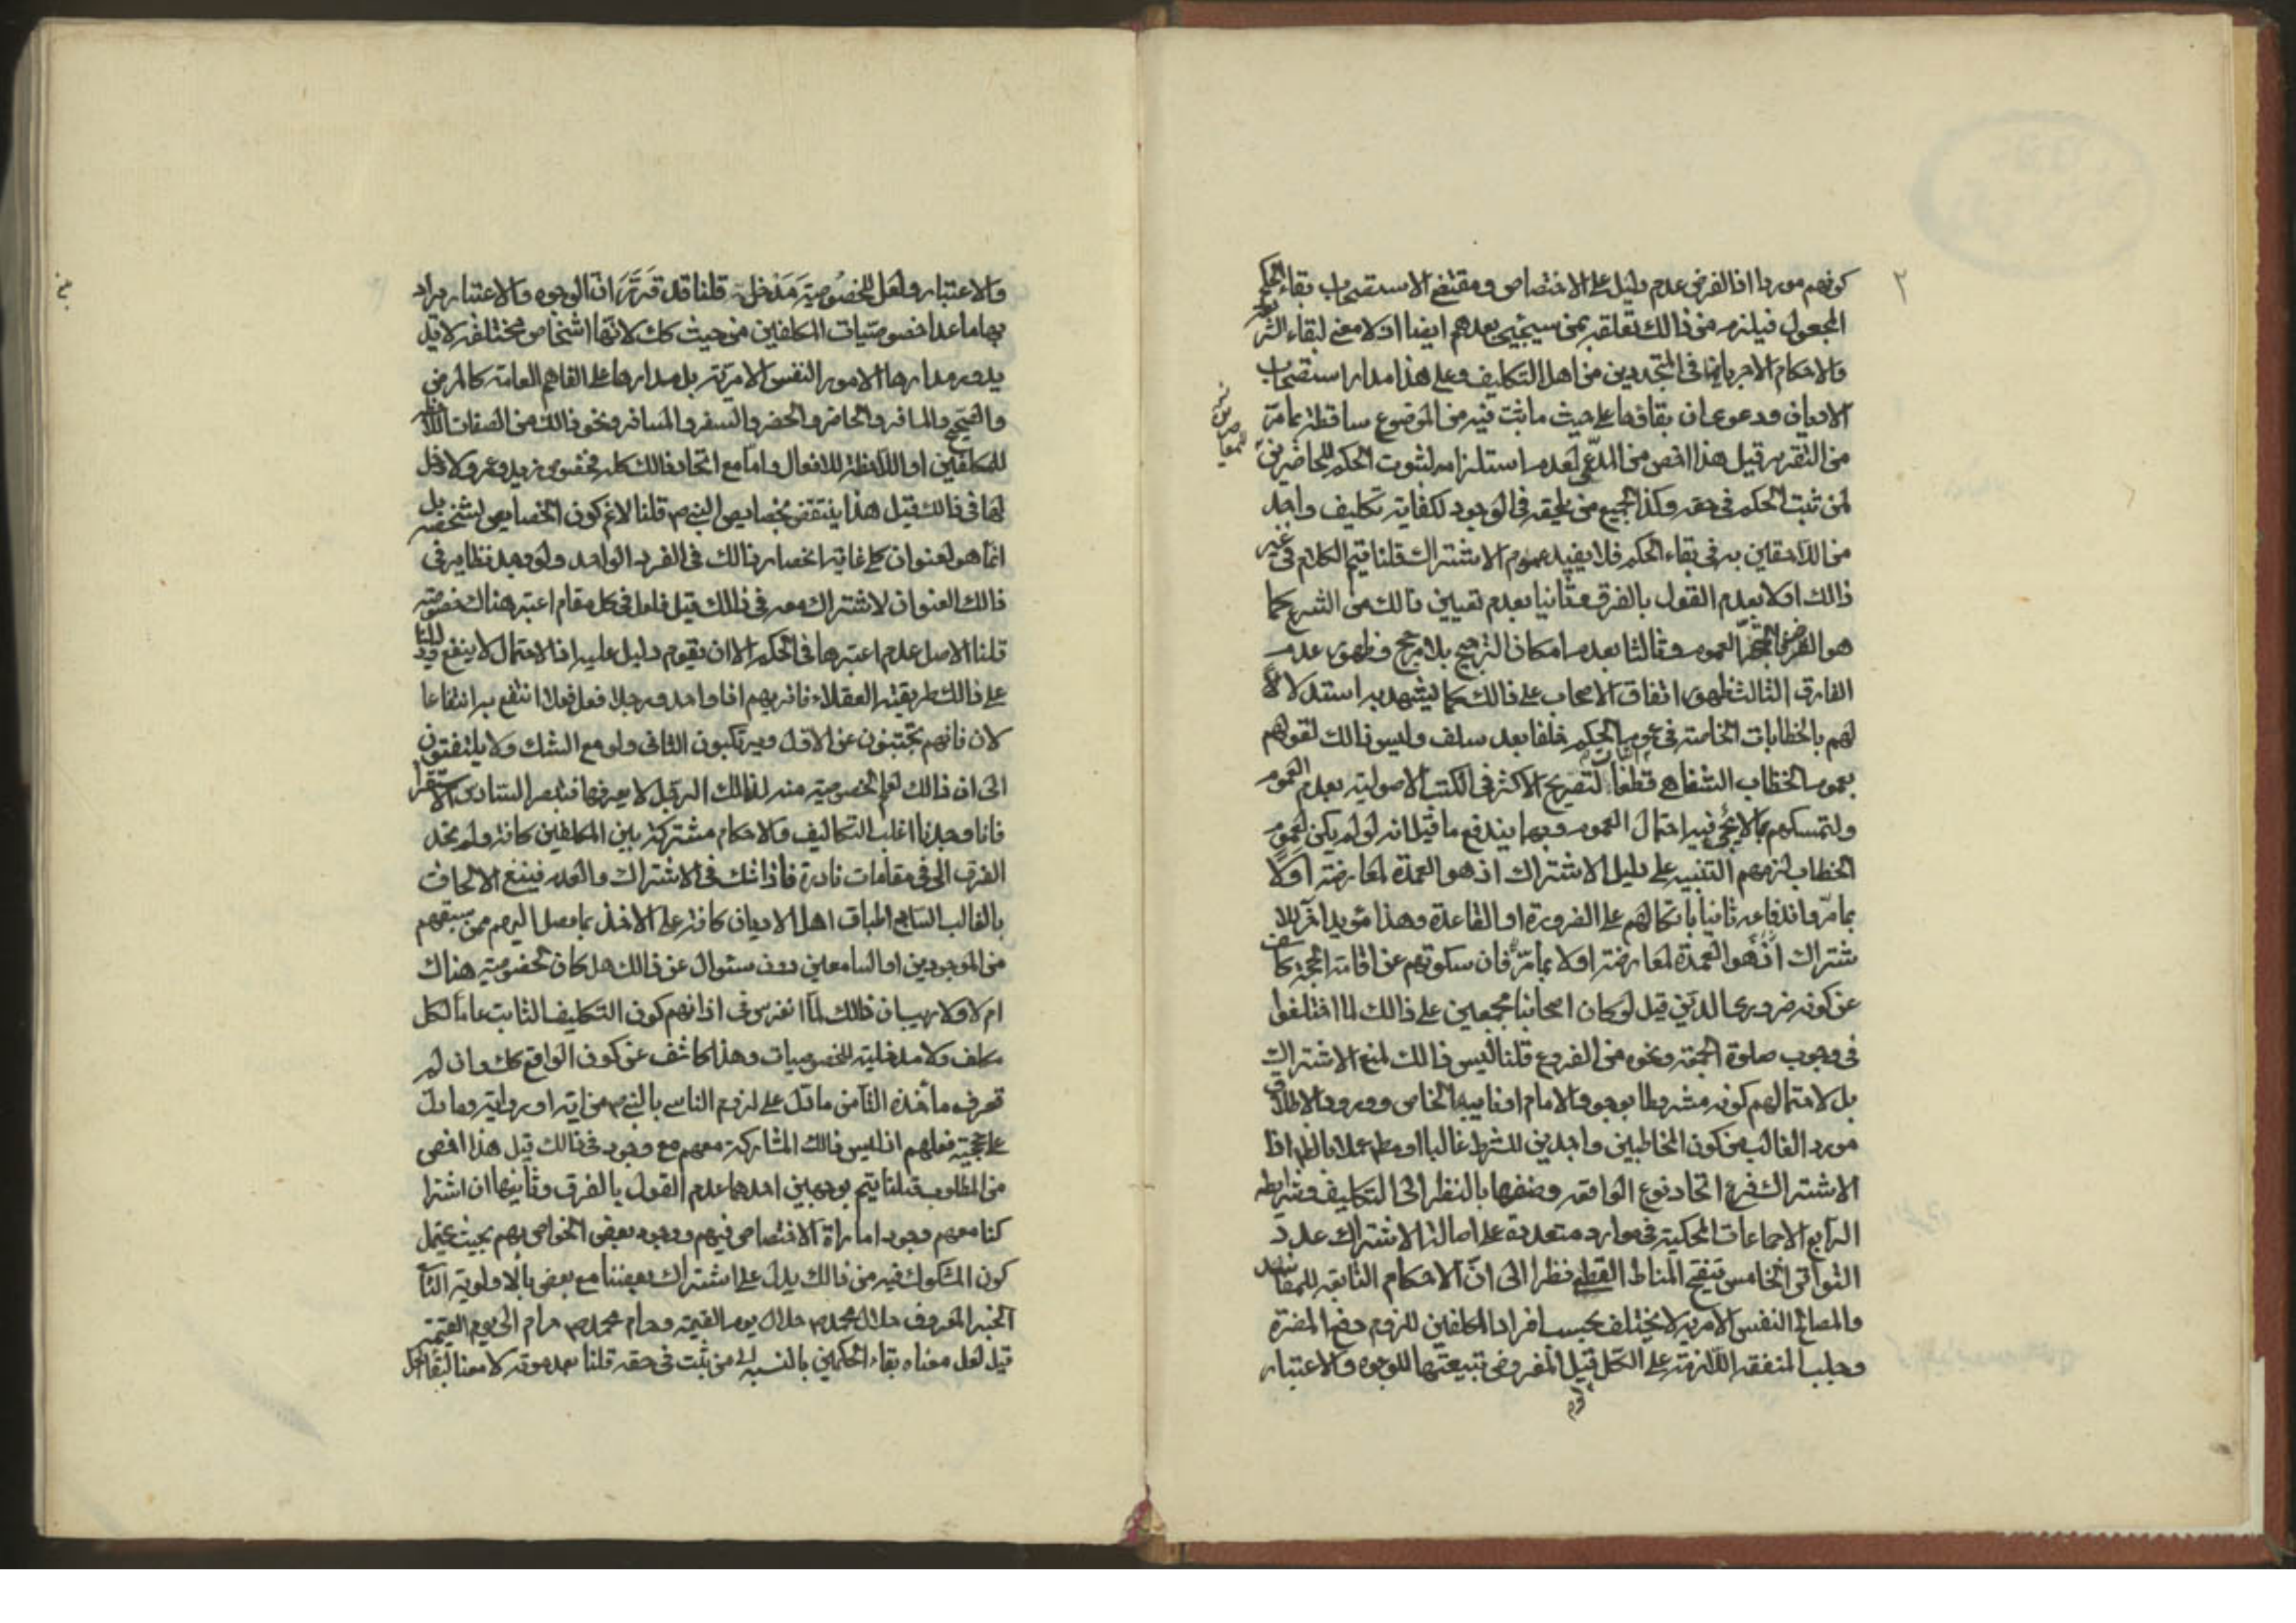 ٢
كونهم موردا اذ الفرض عدم دليل على الاختصاص ومقتضى الاستصحاب بقاء الحكم
المجعول فيلزم من ذالك تعلقه بمن سيجيئ بعدهم ايضا اذ لا معنى لبقاء
والاحكام الا جريانها في المتجددين من اهل التكليف وعلى هذا مدار استصحاب
الاديان ودعوى ان بقاؤها على حيث ما ثبت فيه من الموضوع ساقطة بما مر
من التقرير قيل هذا اخص من المدعى لعدم استلزام لثبوت الحكم للحاضرين
لمن ثبت الحكم في حقه وكذا لجميع من يلحقه في الوجود لكفاية تكليف واحد
من اللاحقين به في بقاء الحكم فلا يفيد عموم الاشتراك قلنا يتم الكلام في غير
ذالك اولا بعدم القول بالفرق وثانيا بعدم تعيين ذالك من الشرع كما
هو الفرض العموم وثالثا بعدم امكان الترجيح بلا مرجح وظهور عدم
الفارق الثالث ظهور اتفاق الاصحاب على ذالك كما يشهد به استدلالا
لهم بالخطابات الخاصة في عموم الحكم خلفا بعد سلف وليس ذالك لقولهم
بعموم الخطاب الشفاهي قطعا لتصريح الاكثر في الكتب الاصولية بعدم العموم
ولتمسكهم بما لا يجئ فيه احتمال العموم وبهما يندفع ما قيل انه لو لم يكن لعموم
الخطاب لزمهم التنبيه على دليل الاشتراك اذ هو العمدة لمعارضته اولا
بما مر واندفاعه ثانيا باتكالهم على الضرورة او القاعدة وهذا مؤيد آخر للا
شتراك اذ هو العمدة لمعارضته اولا بما مر فان سكوتهم عن اقامة الحجة كاشف
عن كونه ضروري الدين قيل لو كان اصحابنا مجمعين على ذالك لما اختلفوا
في وجوب صلوة الجمعة ونحوه من الفروع قلنا ليس ذالك لمنع الاشتراك
بل لاحتمالهم كونه مشروطا بوجود الامام او نايبه الخاص وورود الاطلاق
مورد الغالب من كون المخاطبين واجدين للشرط غالبا او مط عملا بالظ اذا
الاشتراك فرع اتحاد نوع الواقعة وصنفها بالنظر الى التكليف وشرايطه
الرابع الاجماعات المحكية في موارد متعددة على اصالة الاشتراك على حد
التواتر الخامس تنقيح المناط القطعي نظرا الى ان الاحكام التابعة للمفاسد
والمصالح النفس الامرية لا يختلف بحسب افراد المكلفين للزوم دفع المضرة
وجلب المنفعة اللازمة على الكل قيل المفروض تبعيتها للوجوه والاعتبار
والاعتبار ولعل للخصوصية مدخلية قلنا قد قرر ان الوجوه والاعتبار يراد
بها ما عدا خصوصيات المكلفين من حيث كك لانها اشخاص مختلفة لا
يدور مدارها الامور النفس الامرية بل مدارها على الفاهم العامة كالمرض
والصحيح والمسافر والحاضر والحضر والسفر والمسافر ونحو ذالك من الصفات
للمكلفين او اللاحظة للافعال واما مع اتحاد ذالك كله فخصوص زيد وعمرو لا دخل
لها في ذالك قيل هذا ينتقض بخصايص النبي ص قلنا لانم كون الخصايص لشخصه بل
انما هو لعنوان كلي غاية انحصار ذالك في الفرد الواحد ولو وجد نظايره في
ذالك العنوان لاشترك معه في ذالك قيل فلعل في كل مقام اعتبر هناك خصوصية
قلنا الاصل عدم اعتبرها في الحكم الا ان يقوم دليل عليه اذ الاحتمال لا ينفع
على ذالك طريقة العقلاء فانه يهم اذا واحد ورجلا فعل فعلا انتفع به انتفاعا
لان فانهم يجتنبون عن الاول ويرتكبون الثاني ولو مع الشك ولا يلتفتون
الى ان ذالك لعله لخصوصية منه لذالك الرجل لا يعرفها السادس الاستقرا
فانا وجدنا اغلب التكاليف والاحكام مشتركة بين المكلفين كافة ولم نجد
الفرق الى في مقامات نادرة فاذا شك في الاشتراك والعدم فينبغ الالحاق
بالغالب السابع اطباق اهل الاديان كافة على الاخذ بما وصل اليهم ممن سبقهم
من الموجودين او السامعين دون سئوال عن ذالك هل كان لخصوصية هناك
ام لا ولا ريب ان ذالك لما انغرس في اذهانهم كون التكليف الثابت عاما لكل
مكلف ولا مدخلية للخصوصيات وهذا كاشف عن كون الواقع كك وان لم
نعرف مأخذه الثامن ما دل على لزوم التاسي بالنبي ص من اية او رواية وما دل
على حجية فعلهم اذ ليس ذالك المشاركة معهم مع وجود في ذالك قيل هذا اخص
من المطلوب قلنا يتم بوجهين احدهما عدم القول بالفرق وثانيهما ان اشترا
كنا معهم وجود امارة الاختصاص فيهم ووجود بعض الخواص بهم بحيث يحتمل
كون المشكوك فيه من ذالك يدل على اشتراك بعضنا مع بعض بالاولوية
الخبر المعروف حلال محمد ص حلال يوم القيمة وحرام محمد ص حرام الى يوم القيمة
قيل لعل معناه بقاء الحكمين بالنسبة الى من ثبت في حقه قلنا بعد موته لا معنا لبقاء